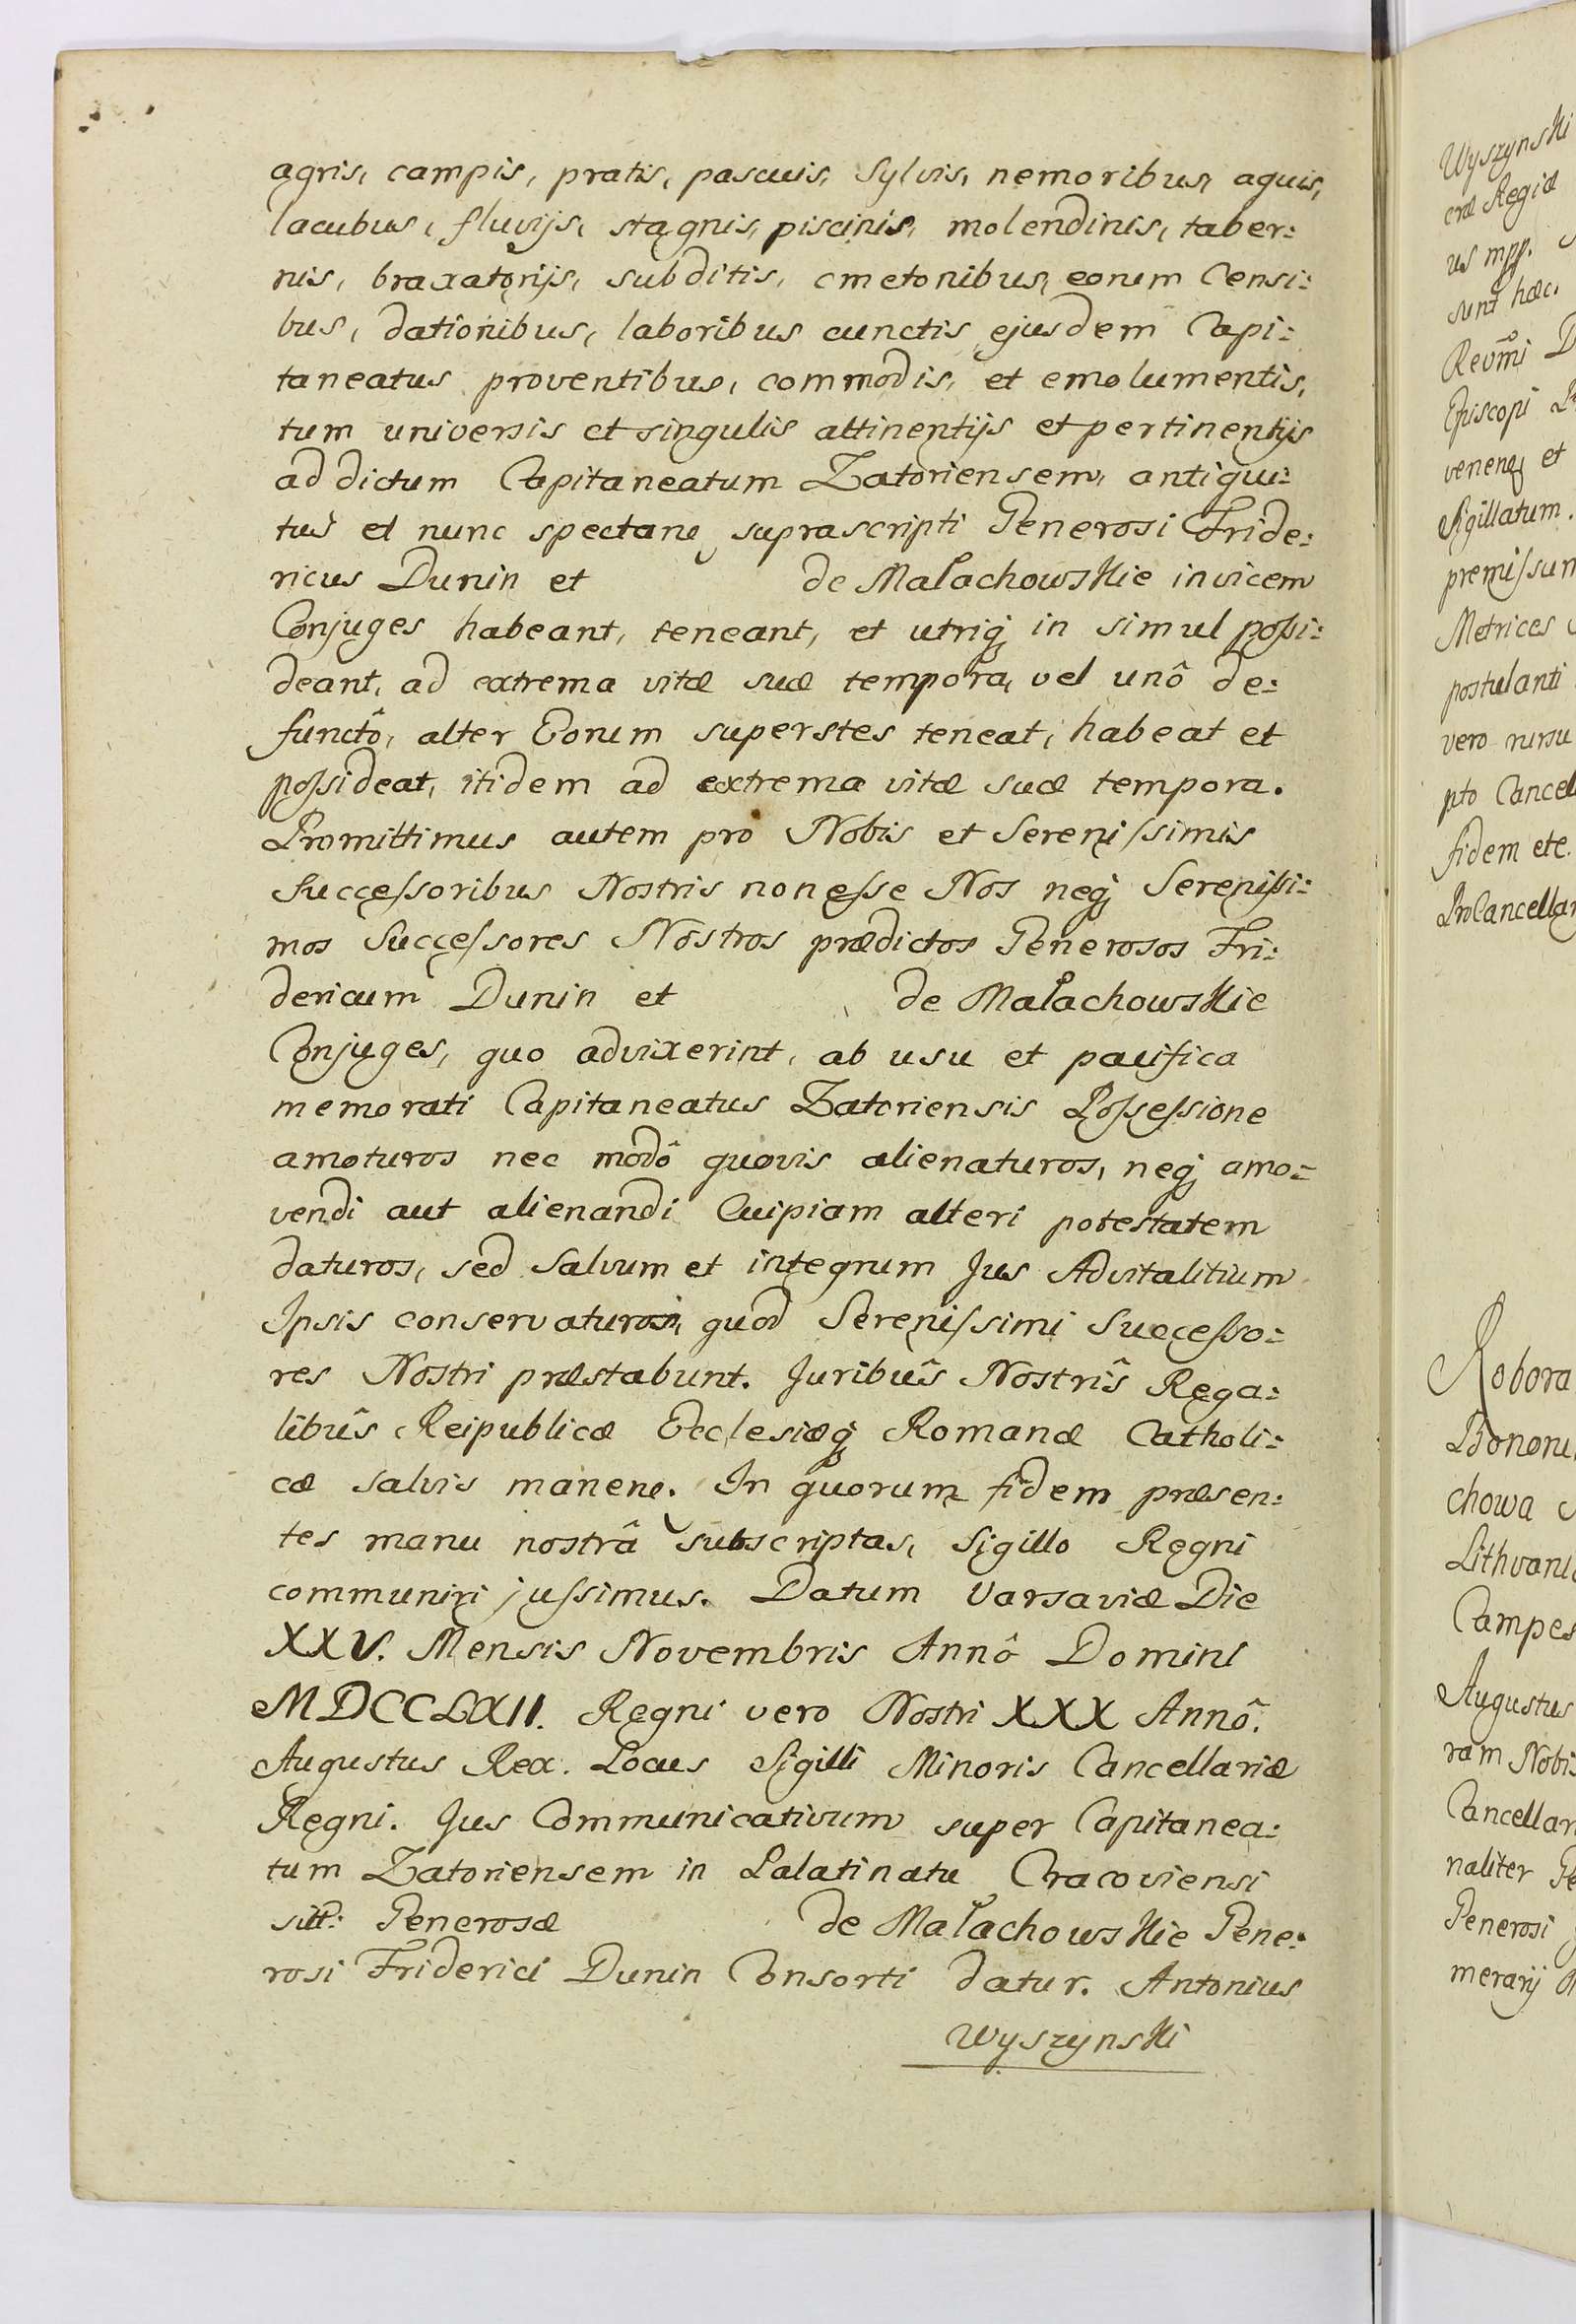 agris, campis, pratis, pascuis, Sylvis, nemoribus, aquis,
lacubus, fluvijs, stagnis, piscinis, molendinis, taber:
nis, braxatorijs, subditis, cmetonibus, eorum Censi:
bus, dationibus, laboribus cunctis ejusdem Capi:
taneatus proventibus, commodis, et emolumentis,
tum universis et singulis attinentijs et pertinentijs
ad dictum Capitaneatum Zatoriensem, antiqui:
tus et nunc spectanę suprascripti Generosi Fride:
ricus Dunin et de Małachowskie invicem
Conjuges habeant, teneant, et utriq̨ in simul possi:
deant, ad extrema vitæ suæ tempora, vel unô de:
functô, alter Eorum superstes teneat, habeat et
possideat, itidem ad extrema vitæ suæ tempora.
Promittimus autem pro Nobis et Serenissimis
Successoribus Nostris non esse Nos neq̨ Serenissi:
mos Successores Nostros prædictos Generosos Fri:
dericum Dunin et de Małachowskie
Conjuges, quo advixerint, ab usu et pacifica
memorati Capitaneatus Zatoriensis Possessione
amoturos nec modô quovis alienaturos, neq̨ amo:
vendi aut alienandi Cuipiam alteri potestatem
daturos, sed Salvum et integrum Jus Advitalitium
Ipsis conservaturos, quod Serenissimi Successo:
res Nostri præstabunt. Juribûs Nostrîs Rega:
libûs Reipublicæ Ecclesiæq̨ Romanæ Catholi:
cæ salvis manenę. In quorum fidem præsen:
tes manu nostrâ subscriptas, Sigillo Regni
communiri jussimus. Datum Varsaviæ Die
XXV. Mensis Novembris Annô Domini
MDCCLXII. Regni vero Nostri XXX Annô.
Augustus Rex. Locus Sigilli Minoris Cancellariæ
Regni. Jus Communicativum super Capitanea:
tum Zatoriensem in Palatinatu Cracoviensi
sitt: Generosæ de Małachowskie Gene:
rosi Friderici Dunin Consorti datur. Antonius
Wyszynski
Wyszynski
cræ Regiæ
us mpp.
sunt hæc.
Reve͠mi D
Episcopi
venenę et
Sigillatum.
premissum
Metrices
postulanti
vero rursu
pto Cancell
fidem etc.
ProCancellar
Robora
Bonoru
chowa
Lithvaniæ
Campes
Augustus
ram Nobis
Cancellar
naliter Ge
Generosi
merarij